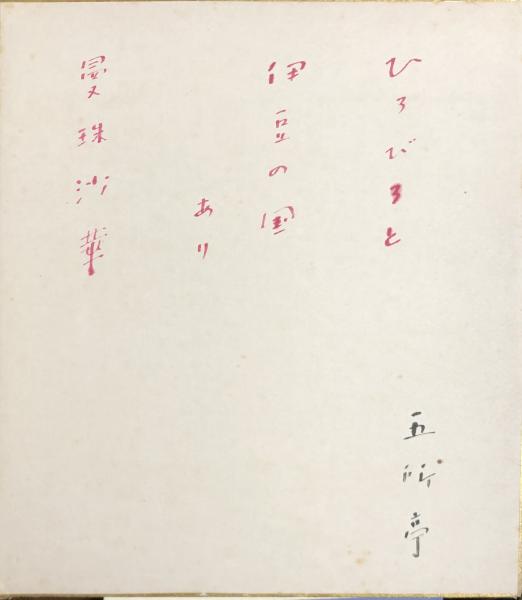 ひろびろと
伊豆の国
あり
曼珠沙華
五所亭